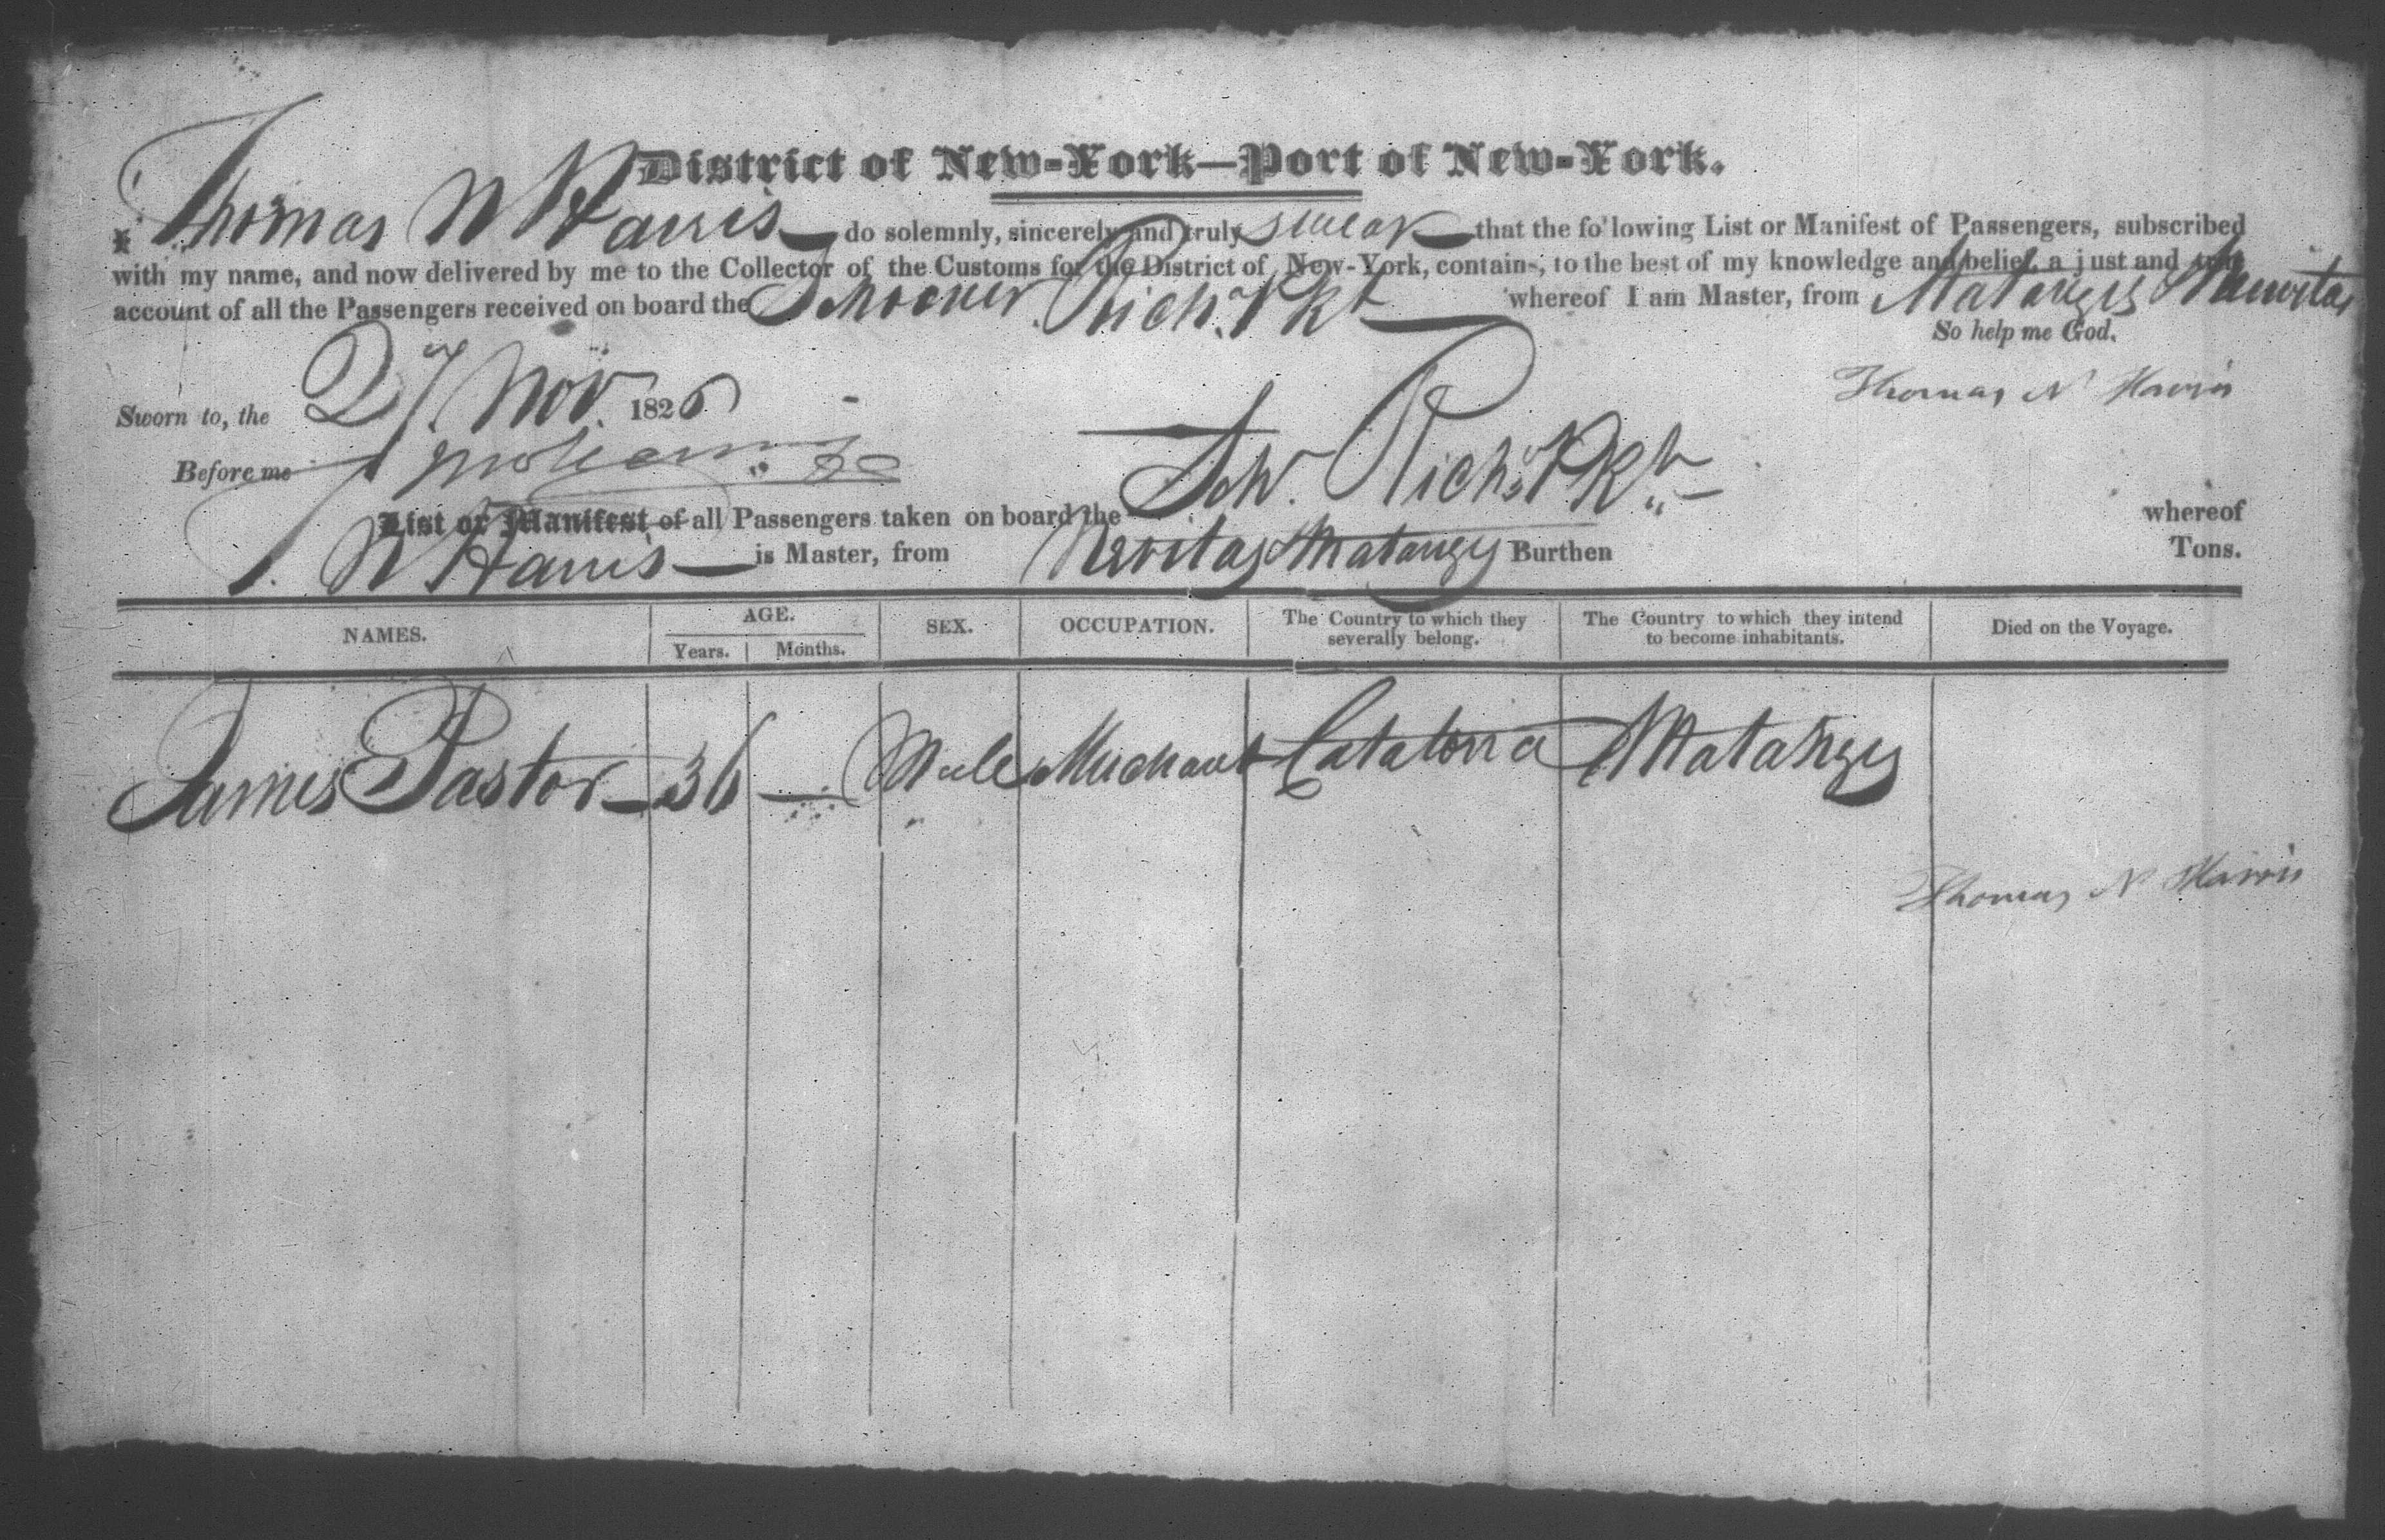 District of New-York—Port of New-York.
I Thomas N Harris do solemnly, sincerely and truly swear that the following List or Manifest of Passengers, subscribed
with my name, and now delivered by me to the Collector of the Customs for the District of New-York, contains, to the best of my knowledge and belief, a just and true
account of all the Passengers received on board the Schooner Rich.d Pkt whereof I am Master, from Matanzys Neuvitas
So help me God.
Thomas N Harris
Sworn to, the 27 Nov. 1826
Before me
List or Manifest of all Passengers taken on board the Schr. Rich.d Pkt whereof
T. N Harris is Master, from Nevitas Matanzys Burthen Tons.
NAMES. AGE. SEX. OCCUPATION. The Country to which they severally belong. The Country to which they intend to become inhabitants. Died on the Voyage.
Years. Months.
James Pastor 36 — Male Merchant Catalona Matanzys
Thomas N Harris